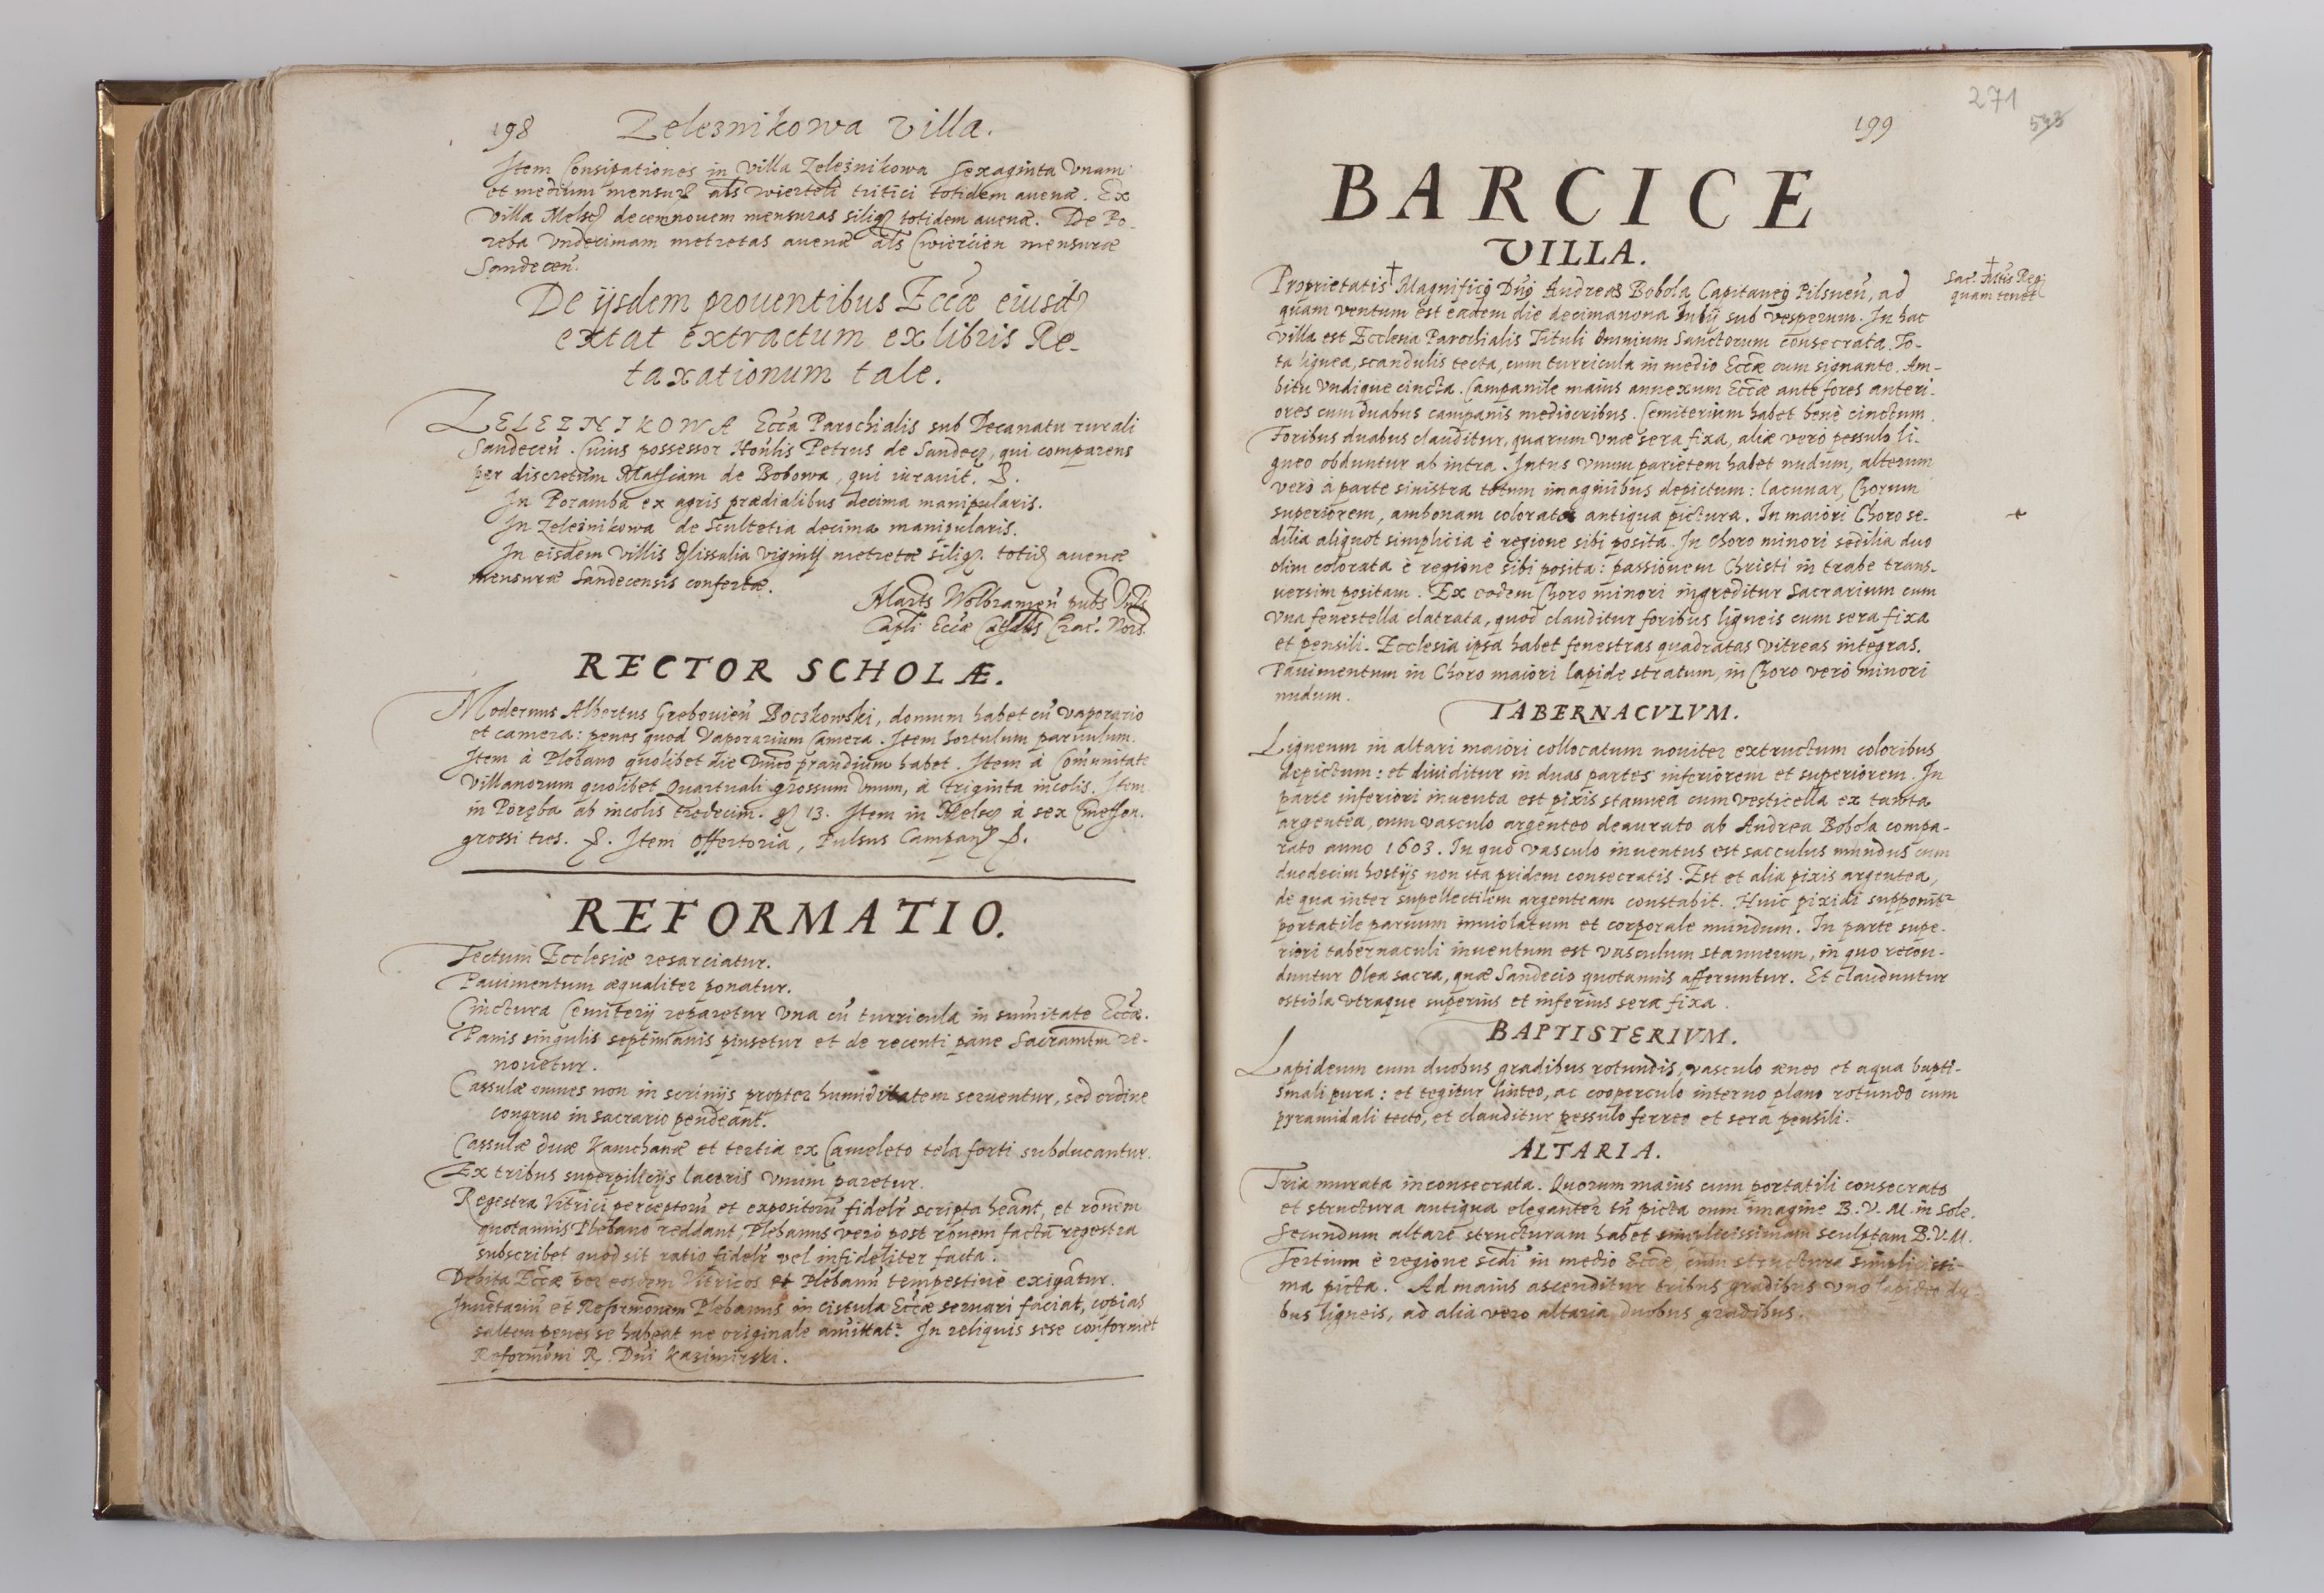 198 Zelesnikowa Villa.
Item Consipationes in Villa Zeleznikowa sexaginta Vnam
et medium mensuræ als wiertell tritici totidem auenæ. Ex
Villa Melsc decemnouem mensuras silig totidem auenæ. De Po-
reba Vndecimam metretas auenæ als Cwiercien mensuræ
Sandecen.
De ijsdem prouentibus Eccæ eiusd
extat extractum ex libris Re-
taxationum tale.
ZELEZNIKOWA Ecca Parochialis sub Decanatu rurali
Sandecen. Cuius possessor Honlis Petrus de Sandecz, qui comparens
per discretum Mathiam de Bobowa, qui iurauit.
In Poramba ex agris prædialibus decima manipularis.
In Zeleznikowa de Scultetia decima manipularis.
In eisdem villis Missalia viginti metretæ silig. totid auenæ
mensuræ Sandecensis confertæ.
Marts Wolbramen pubs
Capli Eccæ Cathlis Crac. Nors.
RECTOR SCHOLÆ.
Modernus Albertus Grebouien Boczkowski, domum habet cu vaporario
et camera: penes quod Vaporarium Camera. Item hortulum paruulum.
Item à Plebano quolibet die Dnico prandium habet. Item à Comunitate
Villanorum quolibet Quartuali grossum Vnum, à triginta incolis. Item
in Poręba ab incolis tredecim. g 13. Item in Melsc à sex Cmethon.
grossi tres. Item Offertoria, Pulsus Campan
REFORMATIO.
Tectum Ecclesiæ resarciatur.
Pauimentum æqualiter ponatur.
Cinctura Cemiterij reparetur Vna cu turricula in sumitate Eccæ.
Panis singulis septimanis pinsetur et de recenti pane Sacramtm re-
nouetur.
Cassulæ omnes non in scrinijs propter humiditatem seruentur, sed ordine
congruo in sacrario pendeant.
Cassulæ duæ Kamchanæ et tertia ex Cameleto tela forti subducantur.
Ex tribus superpillicijs laceris Vnum paretur.
Regestra Vitrici perceptoru et expositoru fidelr scripta heant, et ronem
quotannis Plebano reddant, Plebanus verò post ronem factã regestra
subscribet quod sit ratio fidelr vel infideliter facta.
Debita Eccæ per eosdem Vitricos et Plebanu tempestiuè exigatur.
Inuetariu et Reformonem Plebanus in cistula Eccæ seruari faciat, copias
saltem penes se habeat ne originale amittat. In reliquis sese conformet
Reformoni R. Dni Kazimirski.
271
543
199
BARCICE
VILLA.
Proprietatis † Magnifici Dni Andreas Bobola Capitanei Pilsnen, ad
† Sac. Mtis Regi
quam tenet
quam ventum est eadem die decimanona Iulij sub vesperum. In hac
villa est Ecclesia Parochialis Tituli Omnium Sanctorum consecrata. To-
ta lignea, scandulis tecta, cum turricula in medio Eccæ cum signante. Am-
bitu Vndique cincta. Campanile maius annexum Eccæ ante fores anteri-
ores cum duabus campanis mediocribus. Cemiterium habet benè cinctum.
Foribus duabus clauditur, quarum vnæ sera fixa, aliæ verò pessulo li-
gneo obduntur ab intra. Intus vnum parietem habet nudum, alterum
verò à parte sinistra totum imaginibus depictum: lacunar, Chorum
superiorem, ambonam colorata antiqua pictura. In maiori Choro se-
dilia aliquot simplicia è regione sibi posita. In Choro minori sedilia duo
olim colorata è regione sibi posita: passionem Christi in trabe trans-
uersim positam. Ex eodem Choro minori ingreditur Sacrarium cum
Vna fenestella clatrata, quod clauditur foribus ligneis cum sera fixa
et pensili. Ecclesia ipsa habet fenestras quadratas vitreas integras.
Pauimentum in Choro maiori lapide stratum, in Choro verò minori
nudum.
TABERNACVLVM.
Ligneum in altari maiori collocatum nouiter extructum coloribus
depictum: et diuiditur in duas partes inferiorem et superiorem. In
parte inferiori inuenta est pixis stannea cum vesticella ex tamta
argentea, cum vasculo argenteo deaurato ab Andrea Bobola compa-
rato anno 1603. In quo vasculo inuentus est sacculus mundus cum
duodecim hostijs non ita pridem consecratis. Est et alia pixis argentea,
de qua inter supellectilem argenteam constabit. Huic pixidi supponit
portatile paruum inuiolatum et corporale mundum. In parte supe-
riori tabernaculi inuentum est vasculum stanneum, in quo recon-
duntur Olea sacra, quæ Sandecio quotannis afferuntur. Et clauduntur
ostiola vtraque superius et inferius sera fixa.
BAPTISTERIVM.
Lapideum cum duobus gradibus rotundis, vasculo æneo et aqua bapti-
smali pura: et tegitur linteo, ac cooperculo interno plano rotundo cum
pyramidali tecto, et clauditur pessulo ferreo et sera pensili.
ALTARIA.
Tria murata inconsecrata. Quorum maius cum portatili consecrato
et structura antiqua eleganter tn picta cum imagine B.V.M. in Sole.
Secundum altare structuram habet simplicissimam sculptam B.V.M.
Tertium è regione sedi in medio Eccæ cum structura simplicissi-
ma picta. Ad maius ascenditur tribus gradibus vno lapideo du-
bus ligneis, ad alia vero altaria duobus gradibus.